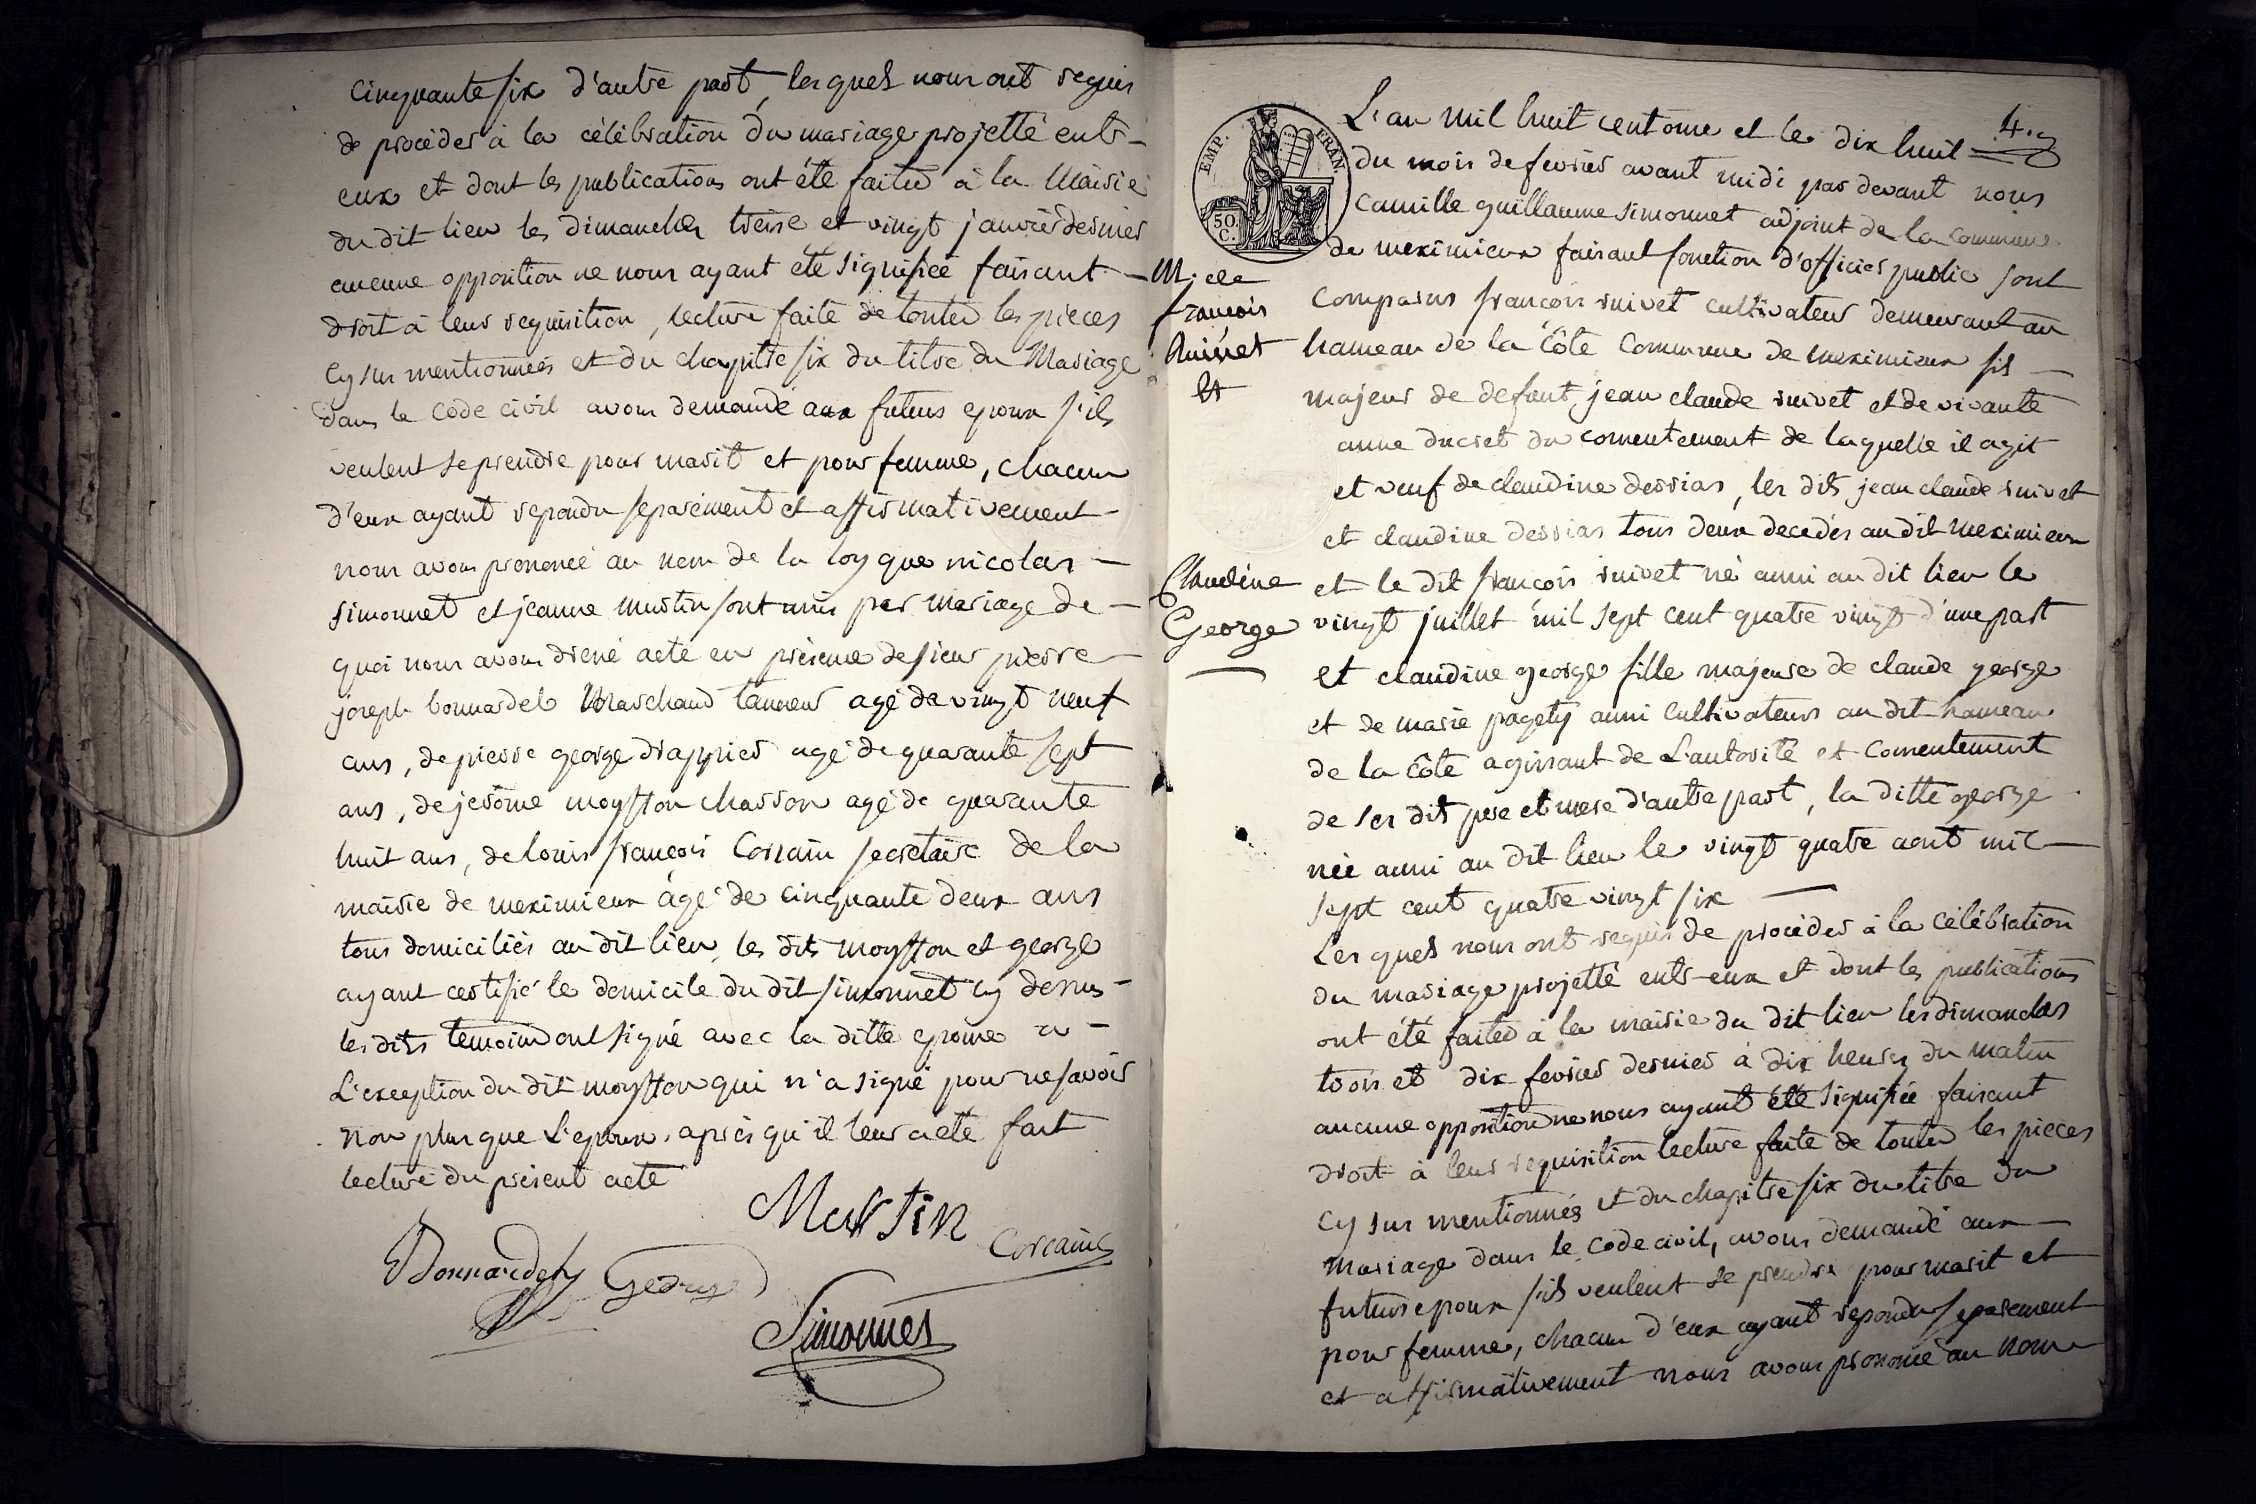 cinquante six d'autre part, les quels nous ont requis
de procéder à la célébration du mariage projetté entr-
eux et dont les publications ont été faites à la Mairie
du dit lieu les dimanches treise et vingt janvier dernier
aucune opposition ne nous ayant été signifiée faisant
droit à leur requisition, lecture faite de toutes les pieces
cy sus mentionnées et du chapitre six du titre du Mariage
dans le code civil avons demandé aux futurs epoux s'ils
veulent se prendre pour marit et pour femme, chacun
d'eux ayant repondu separément et affirmativement
nous avons prononcé au nom de la loy que nicolas
simonnet et jeanne martin sont unis par mariage de
quoi nous avons dréné acte en présence de sieur pierre
joseph bonnardel Marchand tanneur agé de vingt neuf
ans, de pierre george drappier agé de quarante sept
ans, de jerôme moyffon charron agé de quarante
huit ans, de louis françois Corrain secretaire de la
mairie de meximieux âgé de cinquante deux ans
tous domiciliés au dit lieu, les dits moyffon et george
ayant certifié le domicile du dit simonnet cy dessus
les dits temoins ont signé avec la ditte epouse a
L'exception du dit moyffon qui n'a signé pour ne savoir
non plus que L'epoux, après qu'il leur a eté fait
lecture du présent acte
Martin
Corrain
Bonnardel George
Simonnet
4.
L'an mil huit cent onze et le dix huit
du mois de fevrier avant midi par devant nous
camille guillaume simonnet adjoint de la commune
de meximieux faisant fonction d'officier public sont
comparus françois ruivet cultivateur demeurant au
hameau de la côte commune de meximieux fils
majeur de defunt jean claude ruivet et de vivante
anne ducret du consentement de laquelle il agit
et veuf de claudine derrias, les dits jean claude ruivet
et claudine derrias tous deux decedés au dit meximieux
et le dit françois ruivet né aussi au dit lieu le
vingt juillet mil sept cent quatre vingt d'une part
et claudine george fille majeure de claude george
et de marie pagety aussi cultivateurs au dit hameau
de la côte agissant de L'autorité et consentement
de ses dit pere et mere d'autre part, la ditte george
née aussi au dit lieu le vingt quatre aout mil
sept cent quatre vingt six
Les quels nous ont requis de procéder à la célébration
du mariage projetté entr-eux et dont les publications
ont été faites à la mairie du dit lieu les dimanches
trois et dix fevrier dernier à dix heures du matin
aucune opposition ne nous ayant été signifiée faisant
droit à leur requisition lecture faite de toutes les pieces
cy sus mentionnés et du chapitre six du titre du
mariage dans le code civil, avons demandé aux
futurs epoux s'ils veulent se prendre pour marit et
pour femme, chacun d'eux ayant repondu separement
et affirmativement nous avons prononcé au nom
EMP. FRAN.
50.
C.
M. de
françois
Ruivet
et
Claudine
George